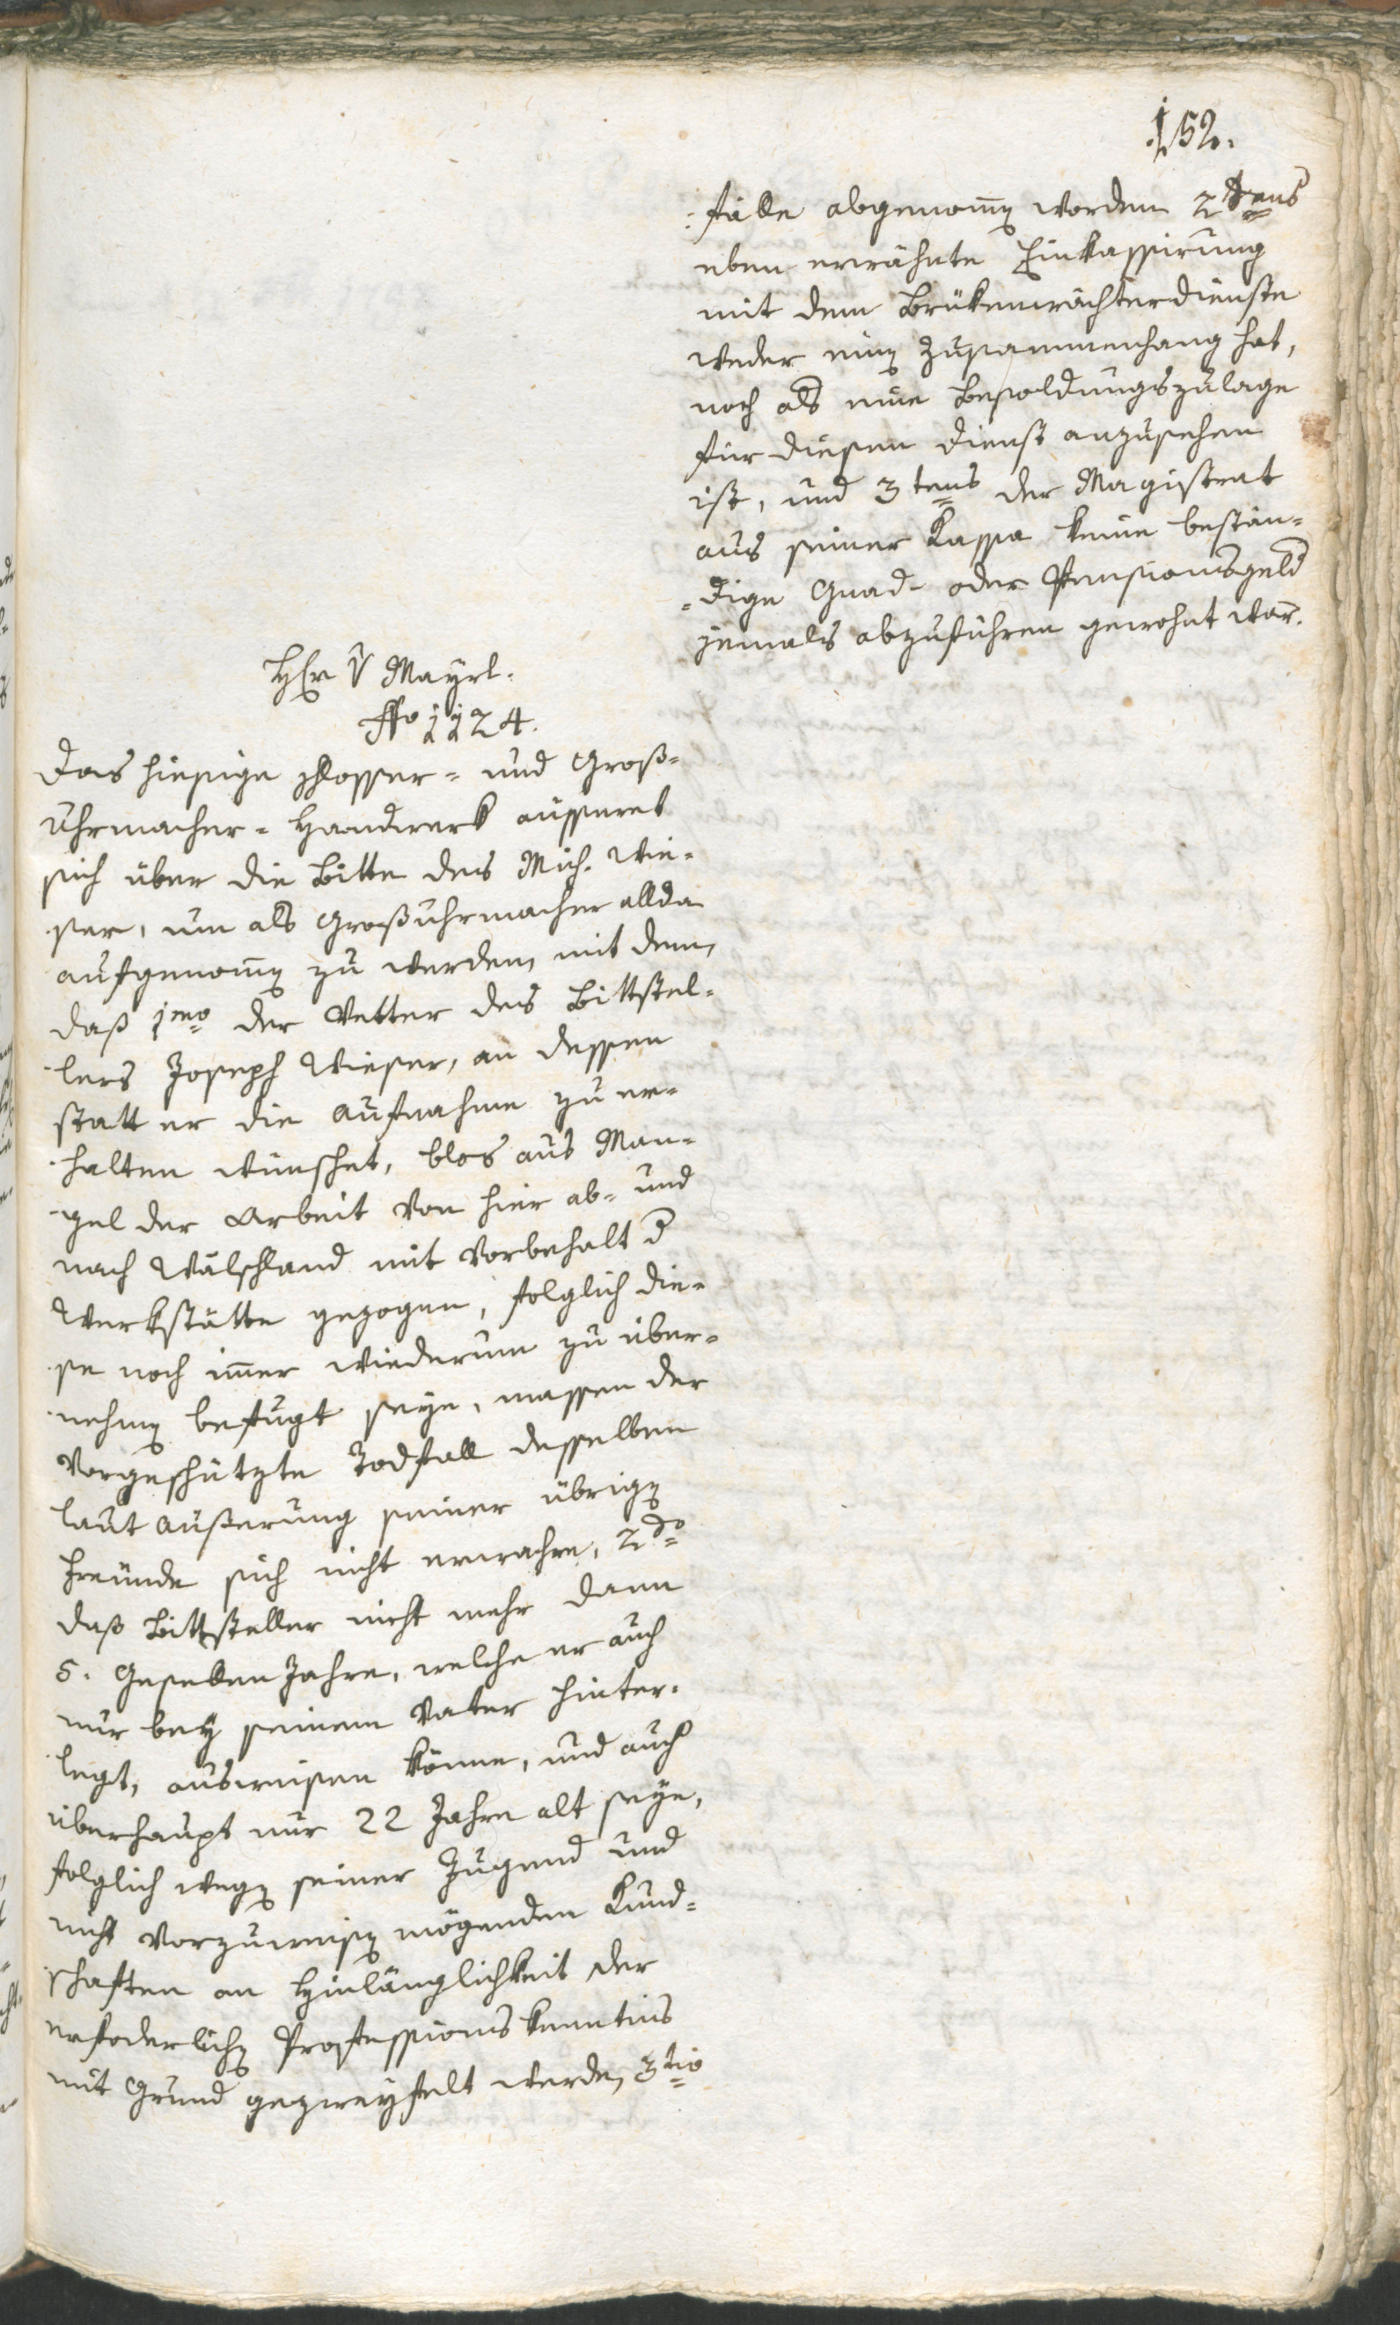 152.
fälle abgenomen worden 2tens
eben erwähnte Einkassirung
mit dem Brükenwächterdienste
weder einen Zusammenhang hat,
noch als eine Besoldungszulage
für diesen Dienst anzusehen
ist, und 3tens der Magistrat
aus seiner Kassa keine bestän-
dige Gnad- oder Pensionsgeld
jemals abzuführen gewohnt war.
Hr v Mayrl.
1124.
Das hiesige Schlosser- und Groß-
Uhrmacher-Handwerk äusseret
sich über die Bitte des Mich. Wie-
ser, um als Großuhrmacher allda
aufgenomen zu werden, mit dem,
daß 1mo der Vetter des Bittstel-
lers Joseph Wieser, an dessen
statt er die Aufnahme zu er-
halten wünschet, blos aus Man-
gel der Arbeit von hier ab- und
nach Wälschland mit Vorbehalt d
Werkstätte gezogen, folglich die-
se noch imer wiederum zu über-
nehmen befugt seye, massen der
Vorgeschützte Todfall desselben
laut Äußerung seiner übrigen
Freunde sich nicht erwahre, 2do
daß Bittsteller nicht mehr dann
5. Gesellen Jahre, welche er auch
nur bey seinem Vater hinter-
legt, ausweisen könne, und auch
überhaupt nur 22 Jahre alt seye,
folglich wegen seiner Jugend und
nicht vorzuweisen mögenden Kund-
schaften an Hinlänglichkeit der
erfoderlichen Professionskenntnis
mit Grund gezweyfelt werde, 3tio